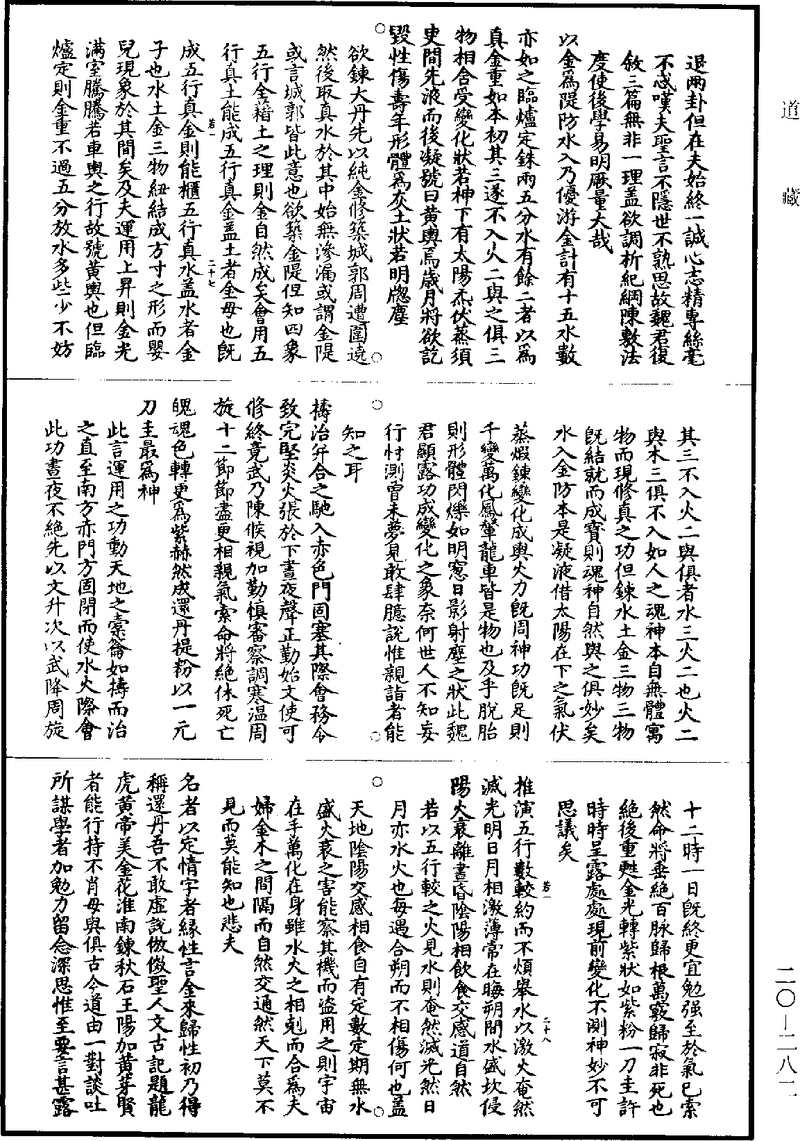 道藏
退兩卦但在夫始終一誠心志精專絲毫
不感嘆夫聖言不隱世不熟思故魏君復
敘三篇無非一理蓋欲調析紀綱陳敷法
度使後學易明厥量大哉
以金為隄防水入乃優游金計有十五水數
亦如之臨爐定銖兩五分水有餘二者以為
真金重如本初其三遂不入火二與之俱三
物相含受變化狀若神下有太陽炁伏蒸須
臾間先液而後凝號曰黃輿焉歲月將欲訖
毀性傷壽年形體為灰土狀若明牕塵
欲鍊大丹先以純金修築城郭周遭圍遶
然後取真水於其中始無滲漏或謂金隄
或言城郭皆此意也欲築金隄但知四象
五行全藉土之理則金自然成矣會用五
行真土能成五行真金蓋土者金母也旣
若一 二十七
成五行真金則能櫃五行真水蓋水者金
子也水土金三物紐結成方寸之形而嬰
兒現象於其間矣及夫運用上昇則金光
滿室騰騰若車輿之行故號黃輿也但臨
爐定則金重不過五分放水多些少不妨
其三不入火二與俱者水三火二也火二
與木三俱不入如人之魂神本自無體寓
物而現修真之功但鍊水土金三物三物
旣結就而成寶則魂神自然與之俱妙矣
水入金防本是凝液借太陽在下之氣伏
蒸煆鍊變化成輿火力旣周神功旣足則
千變萬化鳳輦龍車皆是物也及乎脫胎
則形體閃爍如明窓日影射塵之狀此魏
君顯露功成變化之象奈何世人不知妄
行忖測曾未夢見敢肆臆說惟親詣者能
知之耳
擣治并合之馳入赤色門固塞其際會務令
致完堅炎火張於下晝夜聲正勤始文使可
修終竟武乃陳候視加勤慎審察調寒温周
旋十二節節盡更相親氣索命將絕休死亡
魄魂色轉更為紫赫然成還丹提粉以一元
刀圭最為神
此言運用之功動天地之橐籥如擣而治
之直至南方赤門方固閉而使水火際會
此功晝夜不絕先以文升次以武降周旋
十二時一日旣終更宜勉強至於氣已索
然命將垂絕百脉歸根萬竅歸寂非死也
絕後重甦金光轉紫狀如紫粉一刀圭許
時時呈露處處現前變化不測神妙不可
思議矣
若一 二十八
推演五行數較約而不煩舉水以激火奄然
滅光明日月相激薄常在晦朔間水盛坎侵
陽火衰離晝昏陰陽相飲食交感道自然
若以五行較之火見水則奄然滅光然日
月亦水火也每遇合朔而不相傷何也蓋
天地陰陽交感相食自有定數定期無水
盛火衰之害能察其機而盜用之則宇宙
在手萬化在身雖水火之相剋而合為夫
婦金木之間隔而自然交通然天下莫不
見而莫能知也悲夫
名者以定情字者緣性言金來歸性初乃得
稱還丹吾不敢虛說倣傚聖人文古記題龍
虎黃帝美金花淮南鍊秋石王陽加黃芽賢
者能行持不肖毋與俱古今道由一對談吐
所謀學者加勉力留念深思惟至要言甚露
二〇—二八二